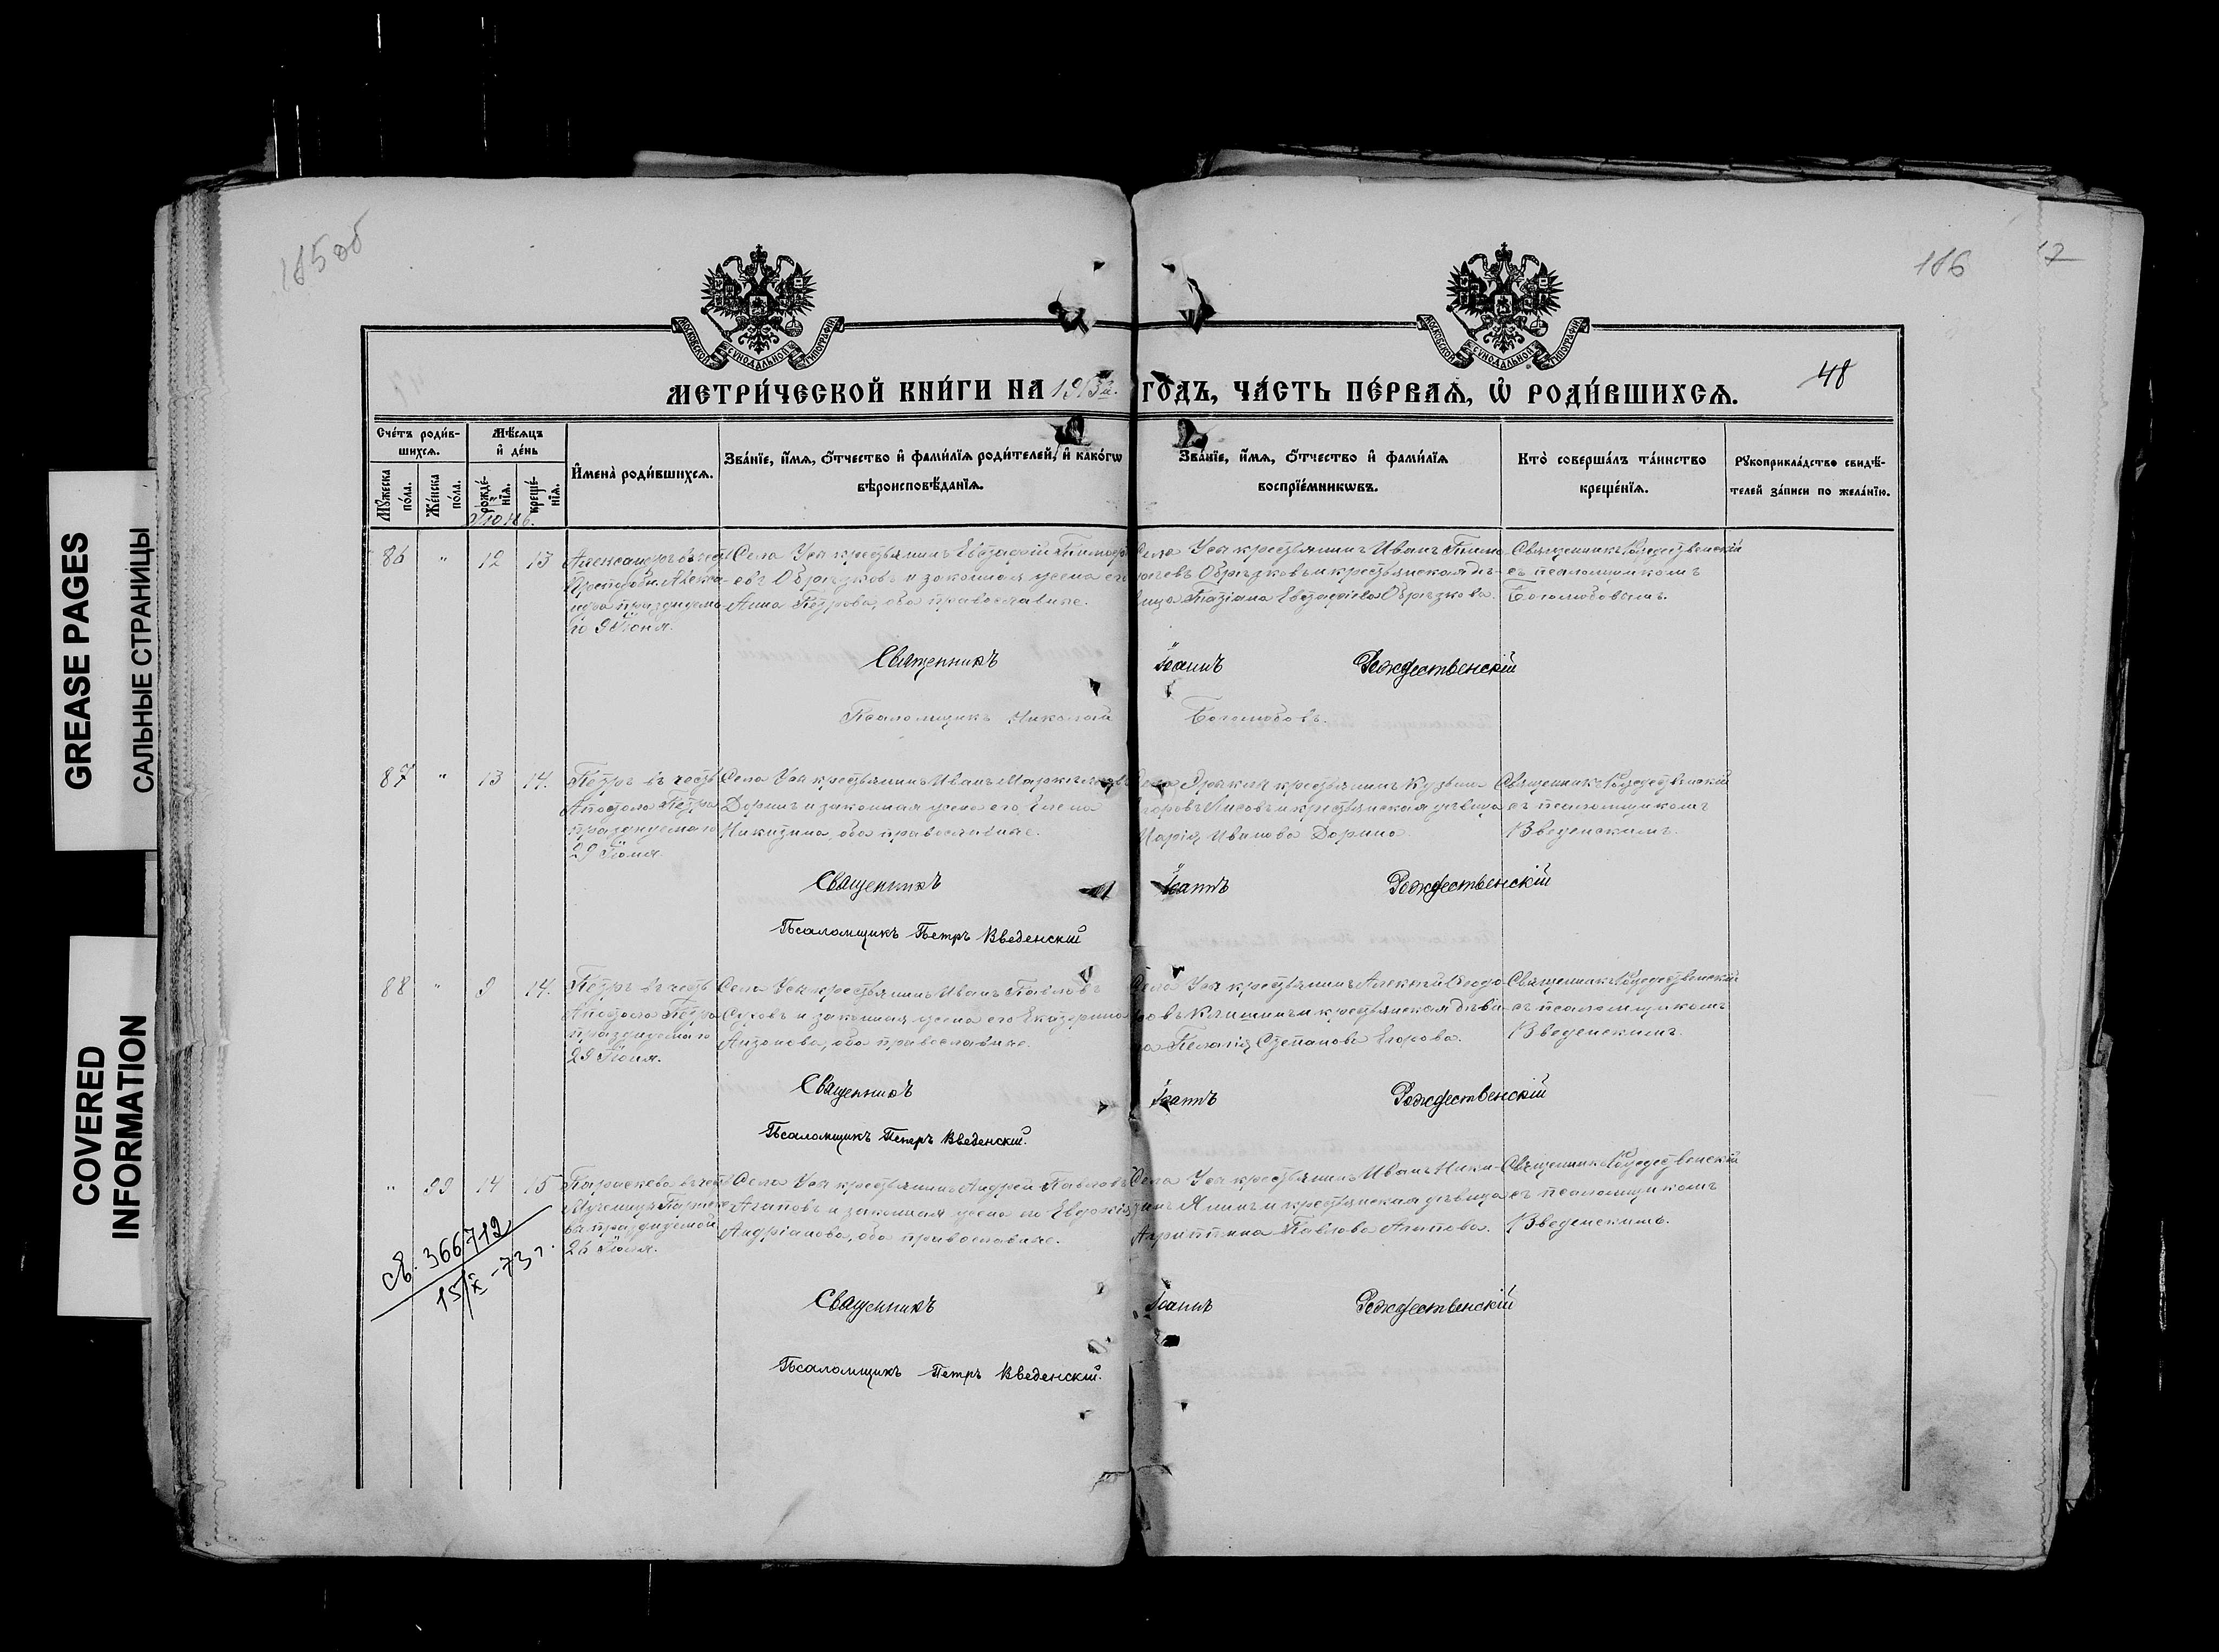 185 об
186
17
48
МОСКОВСКОЙ СѴНОДАЛЬНОЙ ТИПОГРАФІИ
МОСКОВСКОЙ СѴНОДАЛЬНОЙ ТИПОГРАФІИ
МЕТРИ́ЧЕСКОЙ КНИ́ГИ НА 1913 ГОДЪ, ЧА́СТЬ ПЕ́РВАѦ, Ѡ҆ РОДИ́ВШИХСѦ.
Сче́тъ роди́в-
шихсѧ.
Мѣ́сѧцъ
и҆ де́нь
Мꙋ́жеска
по́ла.
Же́нска
по́ла.
рожде́-
нїѧ.
креще́-
нїѧ.
И҆мена̀ роди́вшихсѧ.
Зва́нїе, и҆́мѧ, ѻ҆́тчество и҆ фами́лїѧ роди́телей, и҆ како́гѡ
вѣроисповѣ́данїѧ.
Зва́нїе, и҆́мѧ, ѻ҆́тчество и҆ фами́лїѧ
воспрїе́мникѡвъ.
Кто̀ соверша́лъ та́инство
креще́нїѧ.
Рꙋкоприкла́дство свидѣ́-
телей за́писи по жела́нїю.
86 " 12 13
Село Уся крестьянинъ Евстафій
Обрѣзковъ и законная жена его
Анна Петрова, оба православные.
Села Уся крестьянинъ Иванъ Тимо-
Обрѣзковъ и крестьянская дѣ-
вица Татіана Евстафіева Обрѣзкова.
Священникъ Рождественскій
съ псаломщикомъ
Боголюбовымъ.
Священникъ Іоаннъ Рождественскій
Псаломщикъ Николай Боголюбовъ.
87 " 13 14.
Петръ въ честь
Апостола Петра
празднуемаго
29 Іюня.
крестьянинъ Иванъ
Доринъ и законная жена его Елена
Никитина, оба православные.
крестьянинъ Кузьма
Лисовъ и крестьянская дѣвица
Марія Иванова Дорина.
Священникъ Рождественскій
съ псаломщикомъ
Введенскимъ.
Священникъ Іоаннъ Рождественскій
Псаломщикъ Петръ Введенскій
88 " 9 14.
Петръ въ честь
Апостола Петра
празднуемаго
29 Іюня.
крестьянинъ Иванъ Павловъ
Суровъ и законная жена его Екатерина
Антонова, оба православные.
Села Уся крестьянинъ Алексѣй Ѳедо-
и крестьянская дѣви-
ца Пелагія Степанова Егорова.
Священникъ Рождественскій
съ псаломщикомъ
Введенскимъ.
Священникъ Іоаннъ Рождественскій
Псаломщикъ Петръ Введенскій.
" 99 14 15
Параскева въ честь
Мученицы Параске-
вы празднуемой
26 Іюля.
Села Уся крестьянинъ Андрей Павловъ
Агаповъ и законная жена его Евдокія
Андріанова, оба православные.
Села Уся крестьянинъ Иванъ Ники-
тинъ Ялинъ и крестьянская дѣвица
Агриппина Павлова Агапова.
Священникъ Рождественскій
съ псаломщикомъ
Введенскимъ.
366712
15/IX-73 г.
Священникъ Іоаннъ Рождественскій
Псаломщикъ Петръ Введенскій.
GREASE PAGES
САЛЬНЫЕ СТРАНИЦЫ
COVERED
INFORMATION